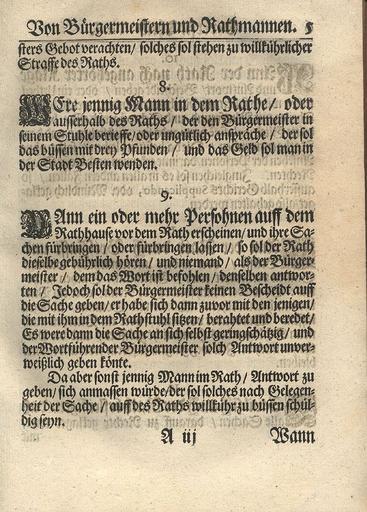 Von Bürgermeistern und Rathmannen. 5
sters Gebot verachten/ solches sol stehen zu willkührlicher
Straffe des Raths.
8.
WEre jennig Mann in dem Rathe/ oder
ausserhalb des Raths / der den Bürgermeister in
seinem Stuhle berieffe/oder ungütlich anspräche / der sol
das büssen mit drey Pfunden / und das Geld sol man in
der Stadt Besten wenden.
9.
WAnn ein oder mehr Persohnen auff dem
Rathhause vor dem Rath erscheinen/ und ihre Sa-
chen fürbringen / oder fürbringen lassen / so sol der Rath
dieselbe gebührlich hören/ und niemand / als der Bürger-
meister / dem das Wort ist befohlen/ denselben antwor-
ten / Jedoch sol der Bürgermeister keinen Bescheidt auff
die Sache geben/ er habe sich dann zuvor mit den jenigen/
die mit ihm in dem Rathstuhl sitzen/ berahtet und beredet/
Es were dann die Sache an sich selbst geringschätzig/ und
der Wortführender Bürgermeister solch Antwort unver-
weißlich geben könte.
Da aber sonst jennig Mann im Rath/ Antwort zu
geben/ sich anmassen würde/ der sol solches nach Gelegen-
heit der Sache / auff des Raths willkühr zu büssen schül-
dig seyn.
A iij Wann